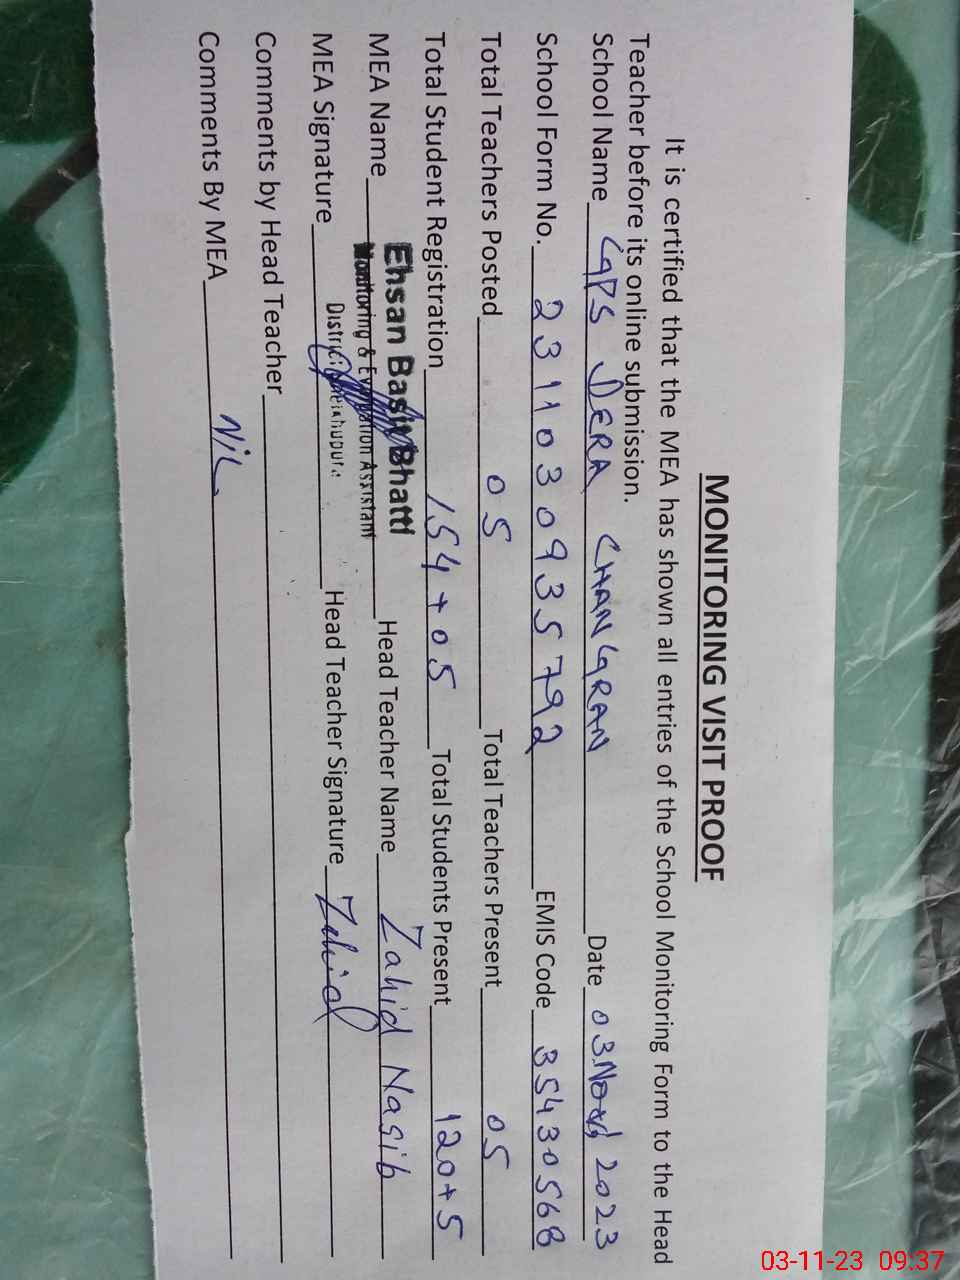 MONITORING VISIT PROOF
It is certified that the MEA has shown all entries of the School Monitoring Form to the Head
Teacher before its online submission.
School Name GPS DERA CHANGRAN Date 03 Nov 2023
School Form No. 2311030935792 EMIS Code 35430568
Total Teachers Posted 05 Total Teachers Present 05
Total Student Registration 154+05 Total Students Present 120+5
MEA Name Ehsan Basit Bhatti Head Teacher Name Zahid Nasib
Monitoring & Evaluation Assistant
District Sheikhupura
MEA Signature Head Teacher Signature Zahid
Comments by Head Teacher
Comments By MEA NiL
03-11-23 09:37